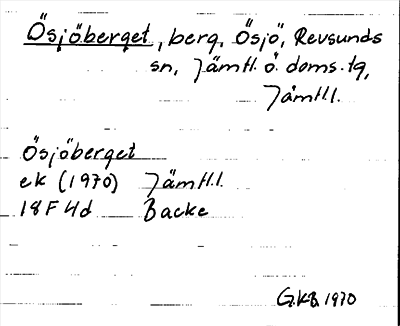 Ösjöberget, berg, Ösjö, Revsunds
sn, Jämtl. ö. doms. tg,
Jämtl.
Ösjöberget
ek (1970) Jämtl.
18F4d Backe
G.K.B. 1970